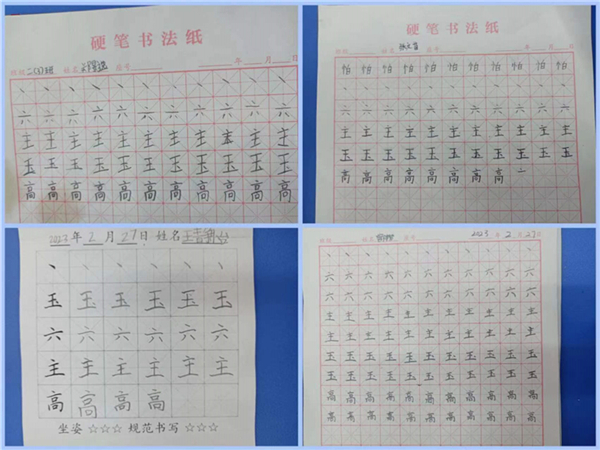 硬笔书法纸
班级 姓名 座号 年 月 日
丶 丶 丶 丶 丶 丶 丶 丶 丶 丶
六 六 六 六 六 六 六 六 六 六
主 主 主 主 主 主 主 主 主 主
玉 玉 玉 玉 玉 玉 玉 玉 玉 玉
高 高 高 高 高 高 高 高 高 高
硬笔书法纸
怕 怕 怕 怕 怕 怕 怕 怕 怕 怕 怕
丶 丶 丶 丶 丶 丶 丶 丶 丶 丶 丶
六 六 六 六 六 六 六 六 六 六 六
主 主 主 主 主 主 主 主 主 主 主
玉 玉 玉 玉 玉 玉 玉 玉 玉 玉 玉
高 高 高 高 高 高 高 高 亠
2023年2月27日 姓名
丶 丶 丶 丶 丶 丶
玉 玉 玉 玉 玉 玉
六 六 六 六 六 六
主 主 主 主 主 主
高 高 高 高
坐姿 ☆☆☆ 规范书写 ☆☆☆
2023年2月27日
丶 丶 丶 丶 丶 丶 丶 丶 丶 丶
六 六 六 六 六 六 六 六 六 六
六 六 六 六 六 六 六 六 六 六
主 主 主 主 主 主 主 主 主 主
主 主 主 主 主 主 主 主 主 主
玉 玉 玉 玉 玉 玉 玉 玉 玉 玉
玉 玉 玉 玉 玉 玉 玉 玉 玉 玉
高 高 高 高 高 高 高 高 高 高
高 高 高 高 高 高 高 高 高 高